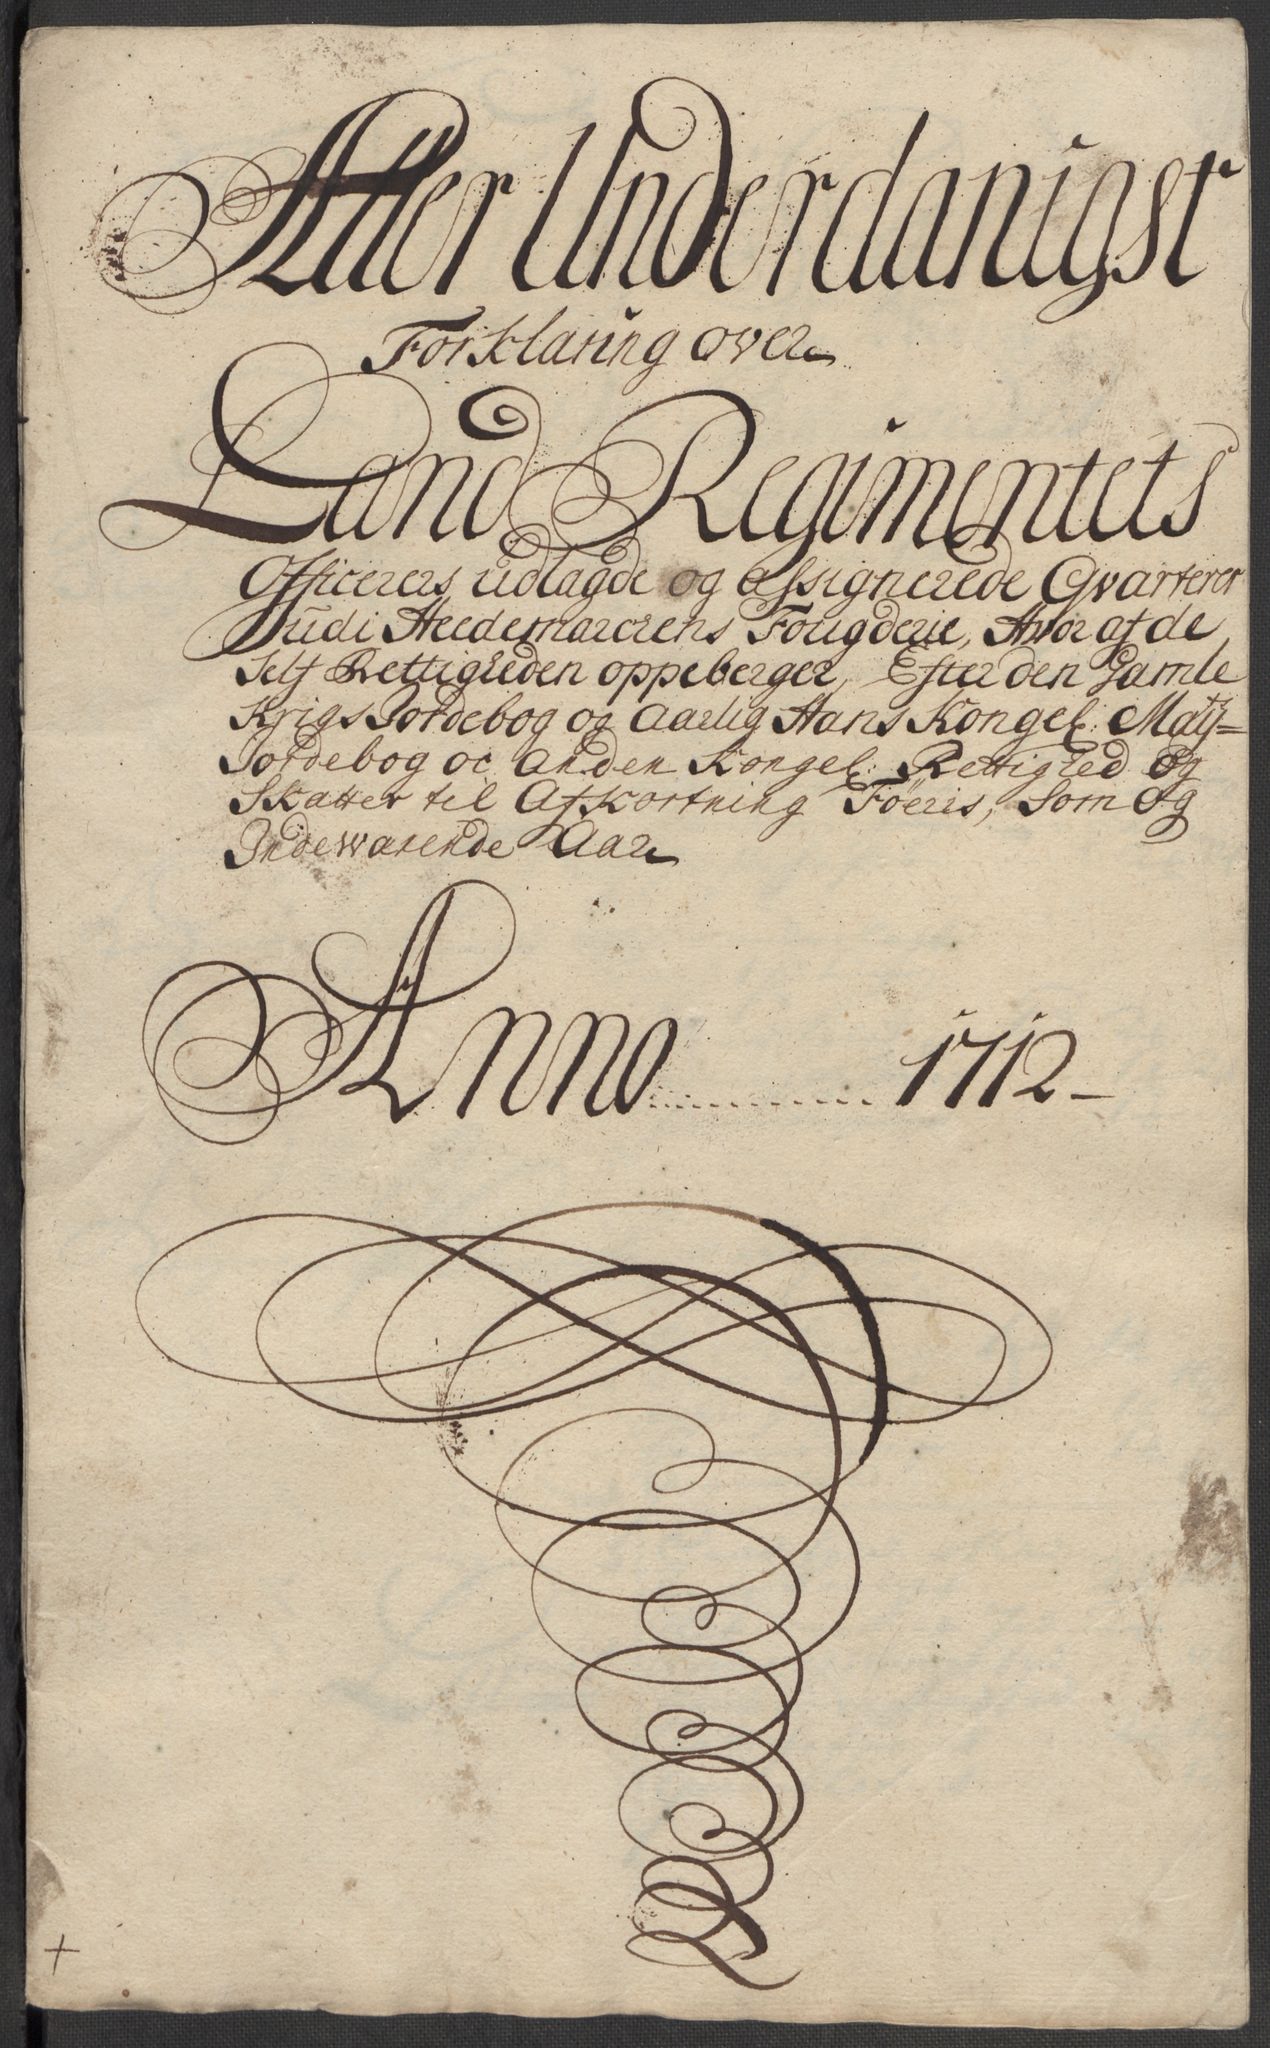 Aller Underdanigst
Forklaring over
Land Regimentets
Officerers udlagde og assignerede Qvarterer
udi Heedemarckens Fougderie, Hvor af de
self Rettigheden oppeberger, Efter den Gamle
Krigs Jordebog og Aarlig Hans Kongel: Maÿts=
Jordebog oc anden Kongel: Rettighed og
Skatter til Afkortning Föeris, Som og
Indewarende Aar
Anno 1712